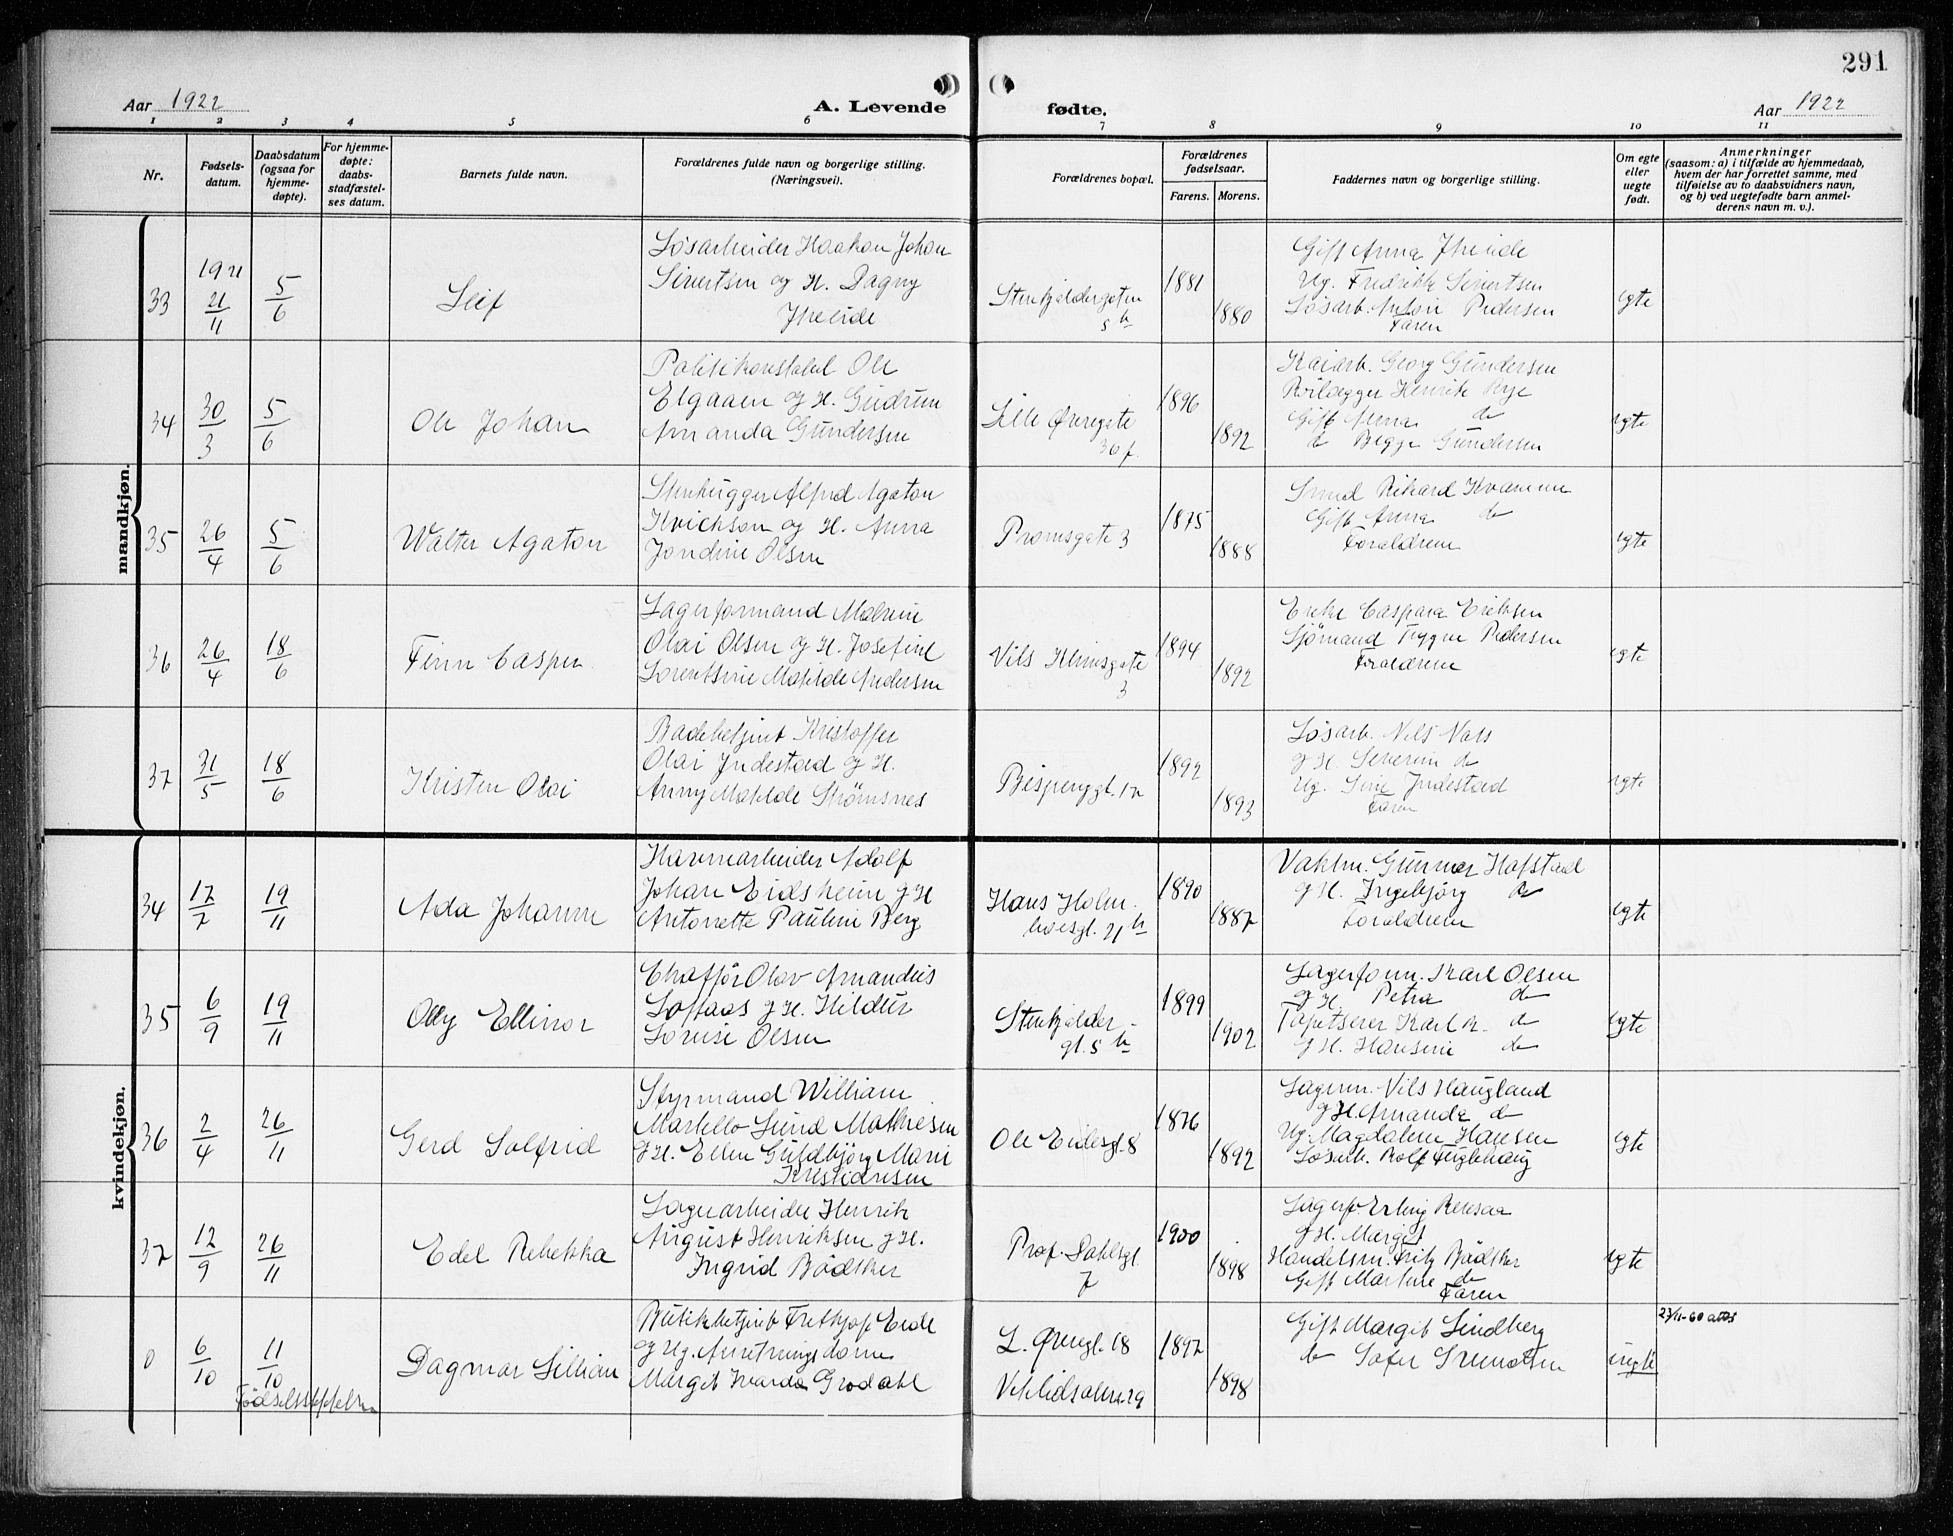 291
Aar 1922
A. Levende
fødte.
Aar 1922
1 2 3 4 5 6 7 8 9 10 11
Nr.
Fødsels-
datum.
Daabsdatum
(ogsaa for
hjemme-
døpte).
For hjemme-
døpte:
daabs-
stadfæstel-
ses datum.
Barnets fulde navn.
Forældrenes fulde navn og borgerlige stilling.
(Næringsvei).
Forældrenes bopæl.
Forældrenes
fødselsaar.
Farens. Morens.
Faddernes navn og borgerlige stilling.
Om egte
eller
uegte
født.
Anmerkninger
(saasom: a) i tilfælde av hjemmedaab,
hvem der har forrettet samme, med
tilføielse av to daabsvidners navn,
og b) ved uegtefødte barn anmel-
derens navn m. v.).
mandkjøn.
33
1921
21/11
5/6
Leif
Løsarbeider Haakon Johan
Sivertsen og H. Dagny
1881
1880
Gift Anna
Ug. Fredrikke Sivertsen
Løsarb. Anton Pedersen
Faren
egte
34
30/3
5/6
Ole Johan
Politikonstabel Ole
Elgaaen og H. Gudrun
Amanda Gundersen
Lille Øvregate
36 f.
1896
1892
Kaiarb. Georg Gundersen
Henrik Rye
Gift Anna do
do Begge Gundersen
egte
35
26/4
5/6
Walter Agaton
Stenhugger Alfred Agaton
og H. Anna
Jondine Olsen
Promsgate 3
1875
1888
Smed Rikard Kvamme
Gift Anna do
Forældrene
egte
36
26/4
18/6
Finn Casper
Lagerformand
Olai Olsen og H. Josefine
Lorentsine Matilde Andersen
Nils Klimsgate
3
1894
1892
Enke Caspara Eriksen
Sjømand Trygve Pedersen
Forældrene
egte
37
31/5
18/6
Kristen Olai
Badebetjent Kristoffer
Olai Indestad og H.
Anny Matilde Strømsnes
1892
1893
Løsarb. Nils
og H. Severine do
Ug. Sine Indestad
Faren
egte
kvindekjøn.
34
17/7
19/11
Ada Johanne
Havnearbeider Adolf
Johan Eidsheim og H
Antonette Pauline Berg
Hans Holm-
boesgt. 21 b
1890
1887
Vaktm. Gunnar Hofstad
og H. Ingebjørg do
Forældrene
egte
35
6/9
19/11
Olly Ellinor
Chaffør Olav Amandus
Loftaas og H. Hildur
Lovise Olsen
Stenkjelder-
gt. 5 b
1899
1902
Lagerform. Karl Olsen
og H. Petra do
Tapetserer Karl R. do
og H. Hansine do
egte
36
2/4
26/11
Gerd Solfrid
Styrmand William
Martello Lund Mathiesen
og H. Ellen Guldbjørg Marie
Kristiansen
Ole Eidesgt. 8
1876
1892
Lagerm. Nils Haugland
og H. Amanda do
Ug. Magdalene Hansen
Løsarb. Rolf Fuglehaug
egte
37
12/9
26/11
Edel Rebekka
Lagerarbeider Henrik
August Henriksen og H.
Ingrid Bødtker
Prof. Dahlsgt.
7
1900
1898
Lagerf. Erling
og H. Margit
Handelsm. Fritz Bødtker
Gift Martine do
Faren
egte
0
6/10
11/10
Fødselsseddelen
Dagmar Lillian
Butikbetjent Fretkjof Eide
og Ug. Anretningsdame
Margit Grodahl
L. Øvregt. 18
1897
1898
Gift Margit Lindberg
do
uegte
23/11-60 attest